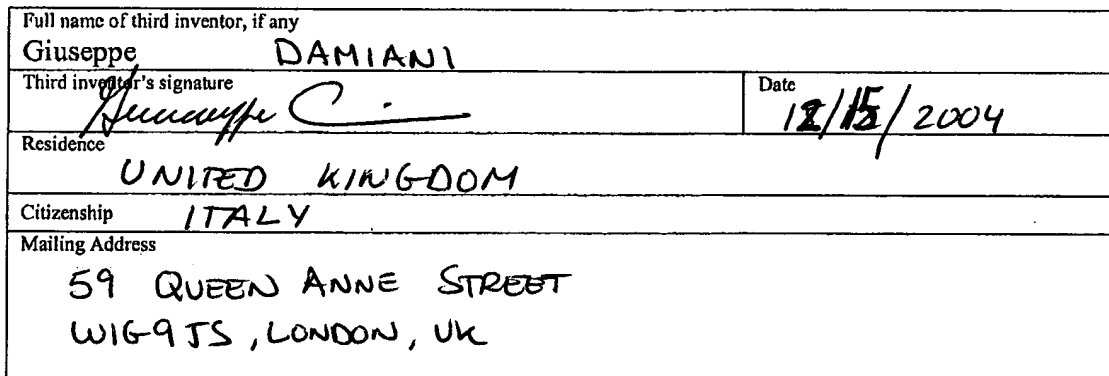 Full name of third inventor, if any
Giuseppe DAMIANI
Third inventor's signature
Date
2004
Residence
UNITED KINGDOM
Citizenship ITALY
Mailing Address
59 QUEEN ANNE STREET
W1G9JS, LONDON, UK